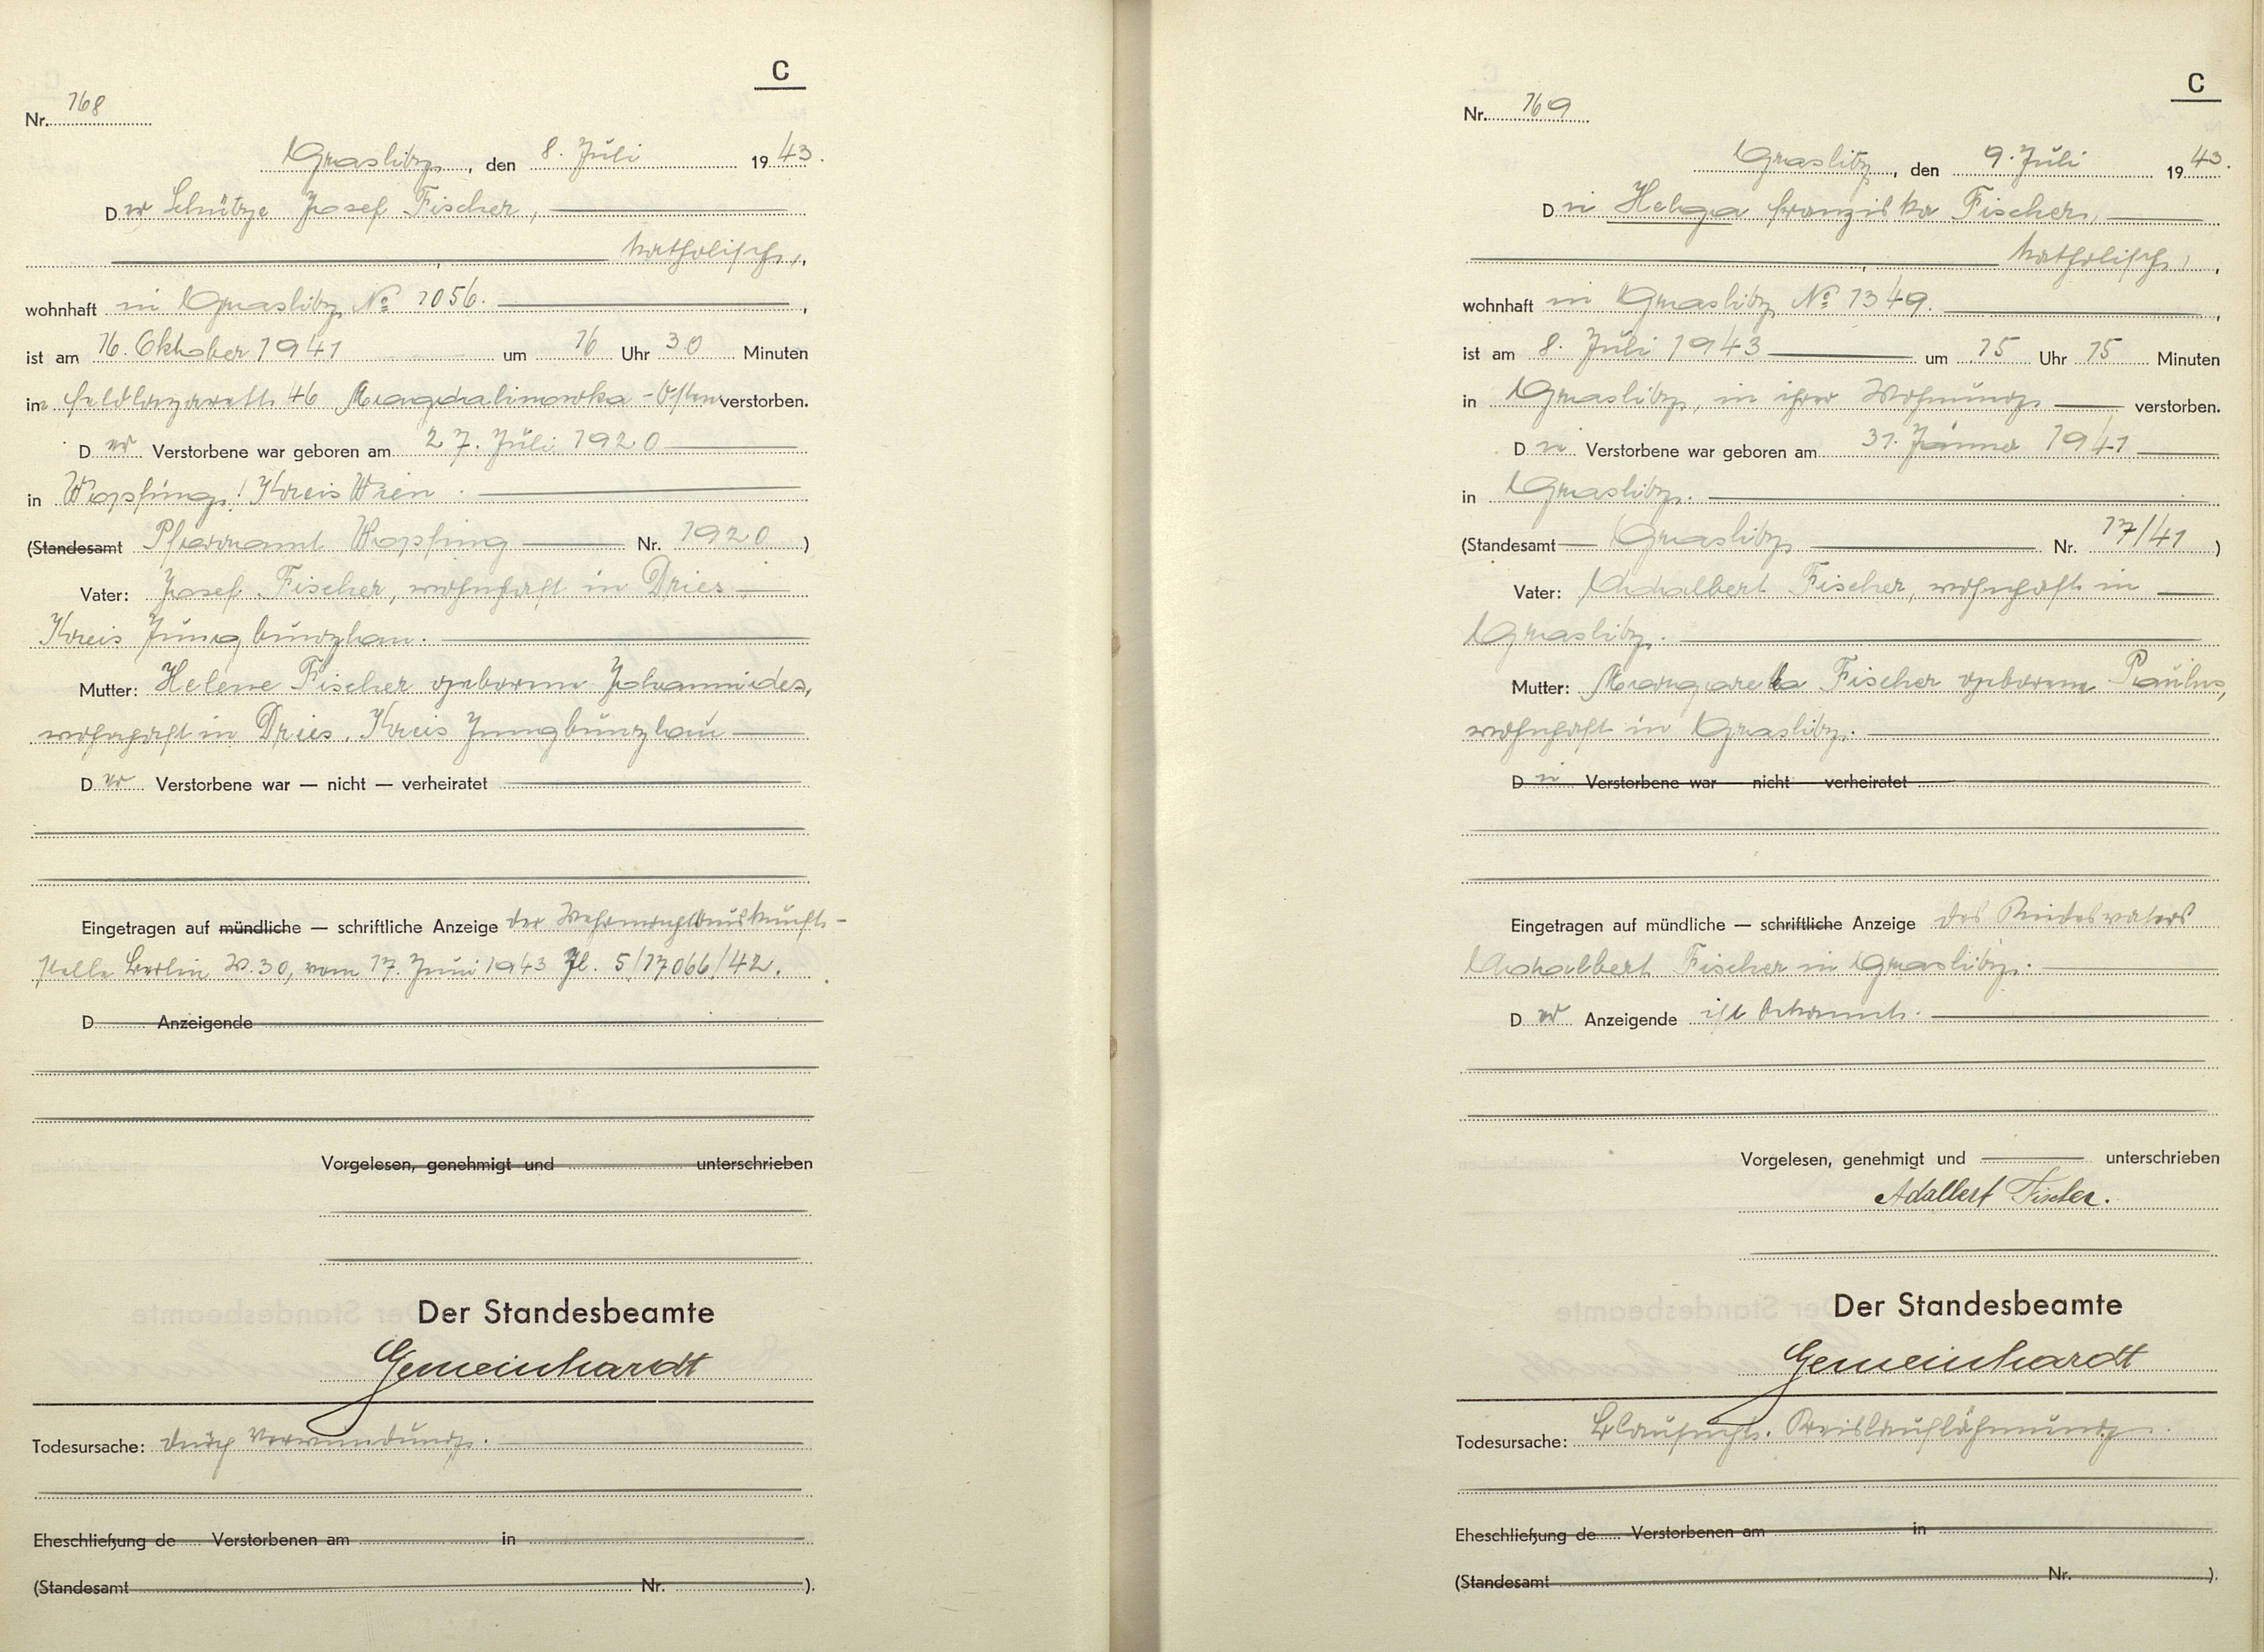 C
Nr. 168
Graslitz, den 8. Juli 1943.
Der Schütze Josef Fischer,
katholisch,
wohnhaft in Graslitz No 1056.
ist am 16. Oktober 1941 um 16 Uhr 30 Minuten
in Feldlazarett 46 Magdalinowka - Osten verstorben.
Der Verstorbene war geboren am 27. Juli 1920
in Wopfing, Kreis Wien.
(Standesamt Pfarramt Wopfing Nr. 1920)
Vater: Josef Fischer, wohnhaft in Dries
Kreis Jungbunzlau.
Mutter: Helene Fischer geborene Johannides,
wohnhaft in Dries, Kreis Jungbunzlau
Der Verstorbene war — nicht — verheiratet
Eingetragen auf mündliche — schriftliche Anzeige der Wehrmachtauskunft-
stelle Berlin W. 30, vom 17. Juni 1943 Zl. 5/17066/42.
D Anzeigende
Vorgelesen, genehmigt und unterschrieben
Der Standesbeamte
Gemeinhardt
Todesursache: durch Verwundung.
Eheschließung de Verstorbenen am in
(Standesamt Nr. ).
C
Nr. 169
Graslitz, den 9. Juli 1943.
Die Helga Franziska Fischer,
katholisch,
wohnhaft in Graslitz No 1349.
ist am 8. Juli 1943 um 15 Uhr 15 Minuten
in Graslitz, in ihrer Wohnung verstorben.
Die Verstorbene war geboren am 31. Jänner 1941
in Graslitz.
(Standesamt Graslitz Nr. 17/41)
Vater: Adalbert Fischer, wohnhaft in
Graslitz.
Mutter: Margareta Fischer geborene Paulus,
wohnhaft in Graslitz.
Die Verstorbene war nicht verheiratet
Eingetragen auf mündliche — schriftliche Anzeige des Kindesvaters
Adalbert Fischer in Graslitz.
Der Anzeigende ist bekannt.
Vorgelesen, genehmigt und unterschrieben
Adalbert Fischer.
Der Standesbeamte
Gemeinhardt
Todesursache: Blausucht. Kreislauflähmung.
Eheschließung de Verstorbenen am in
(Standesamt Nr. ).